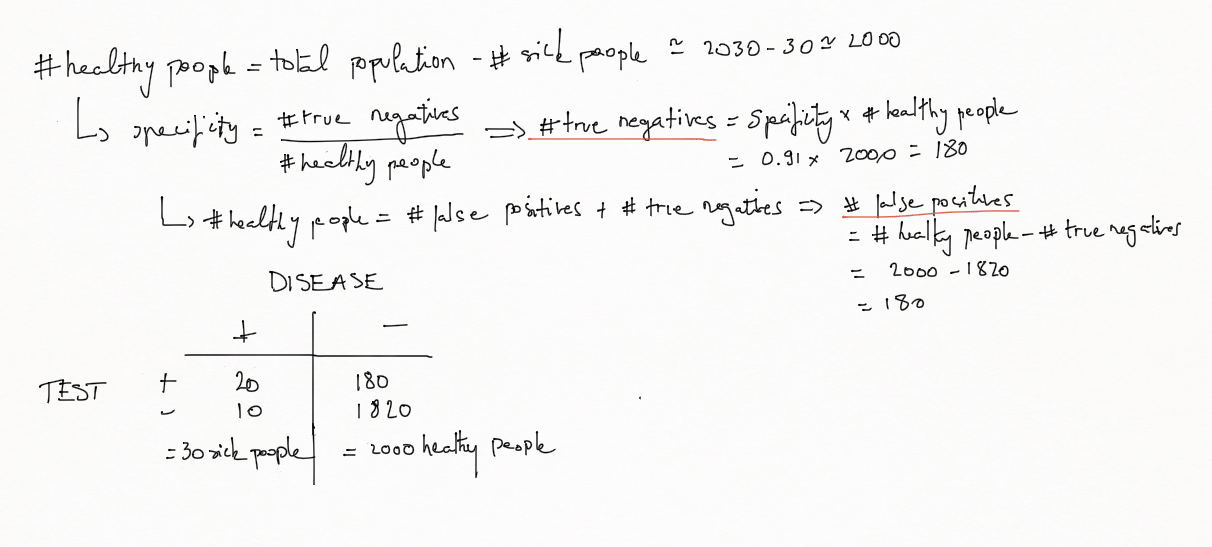 #healthy people = total population - # sick people ≃ 2030 - 30 ≃ 2000
↳ specificity = #true negatives / #healthy people => #true negatives = Specificity x # healthy people
= 0.91 x 2000 = 180
↳ #healthy people = # false positives + # true negatives => # false positives
= # healthy people - # true negatives
= 2000 - 1820
= 180
DISEASE
+ -
TEST + 20 180
- 10 1820
= 30 sick people = 2000 healthy people